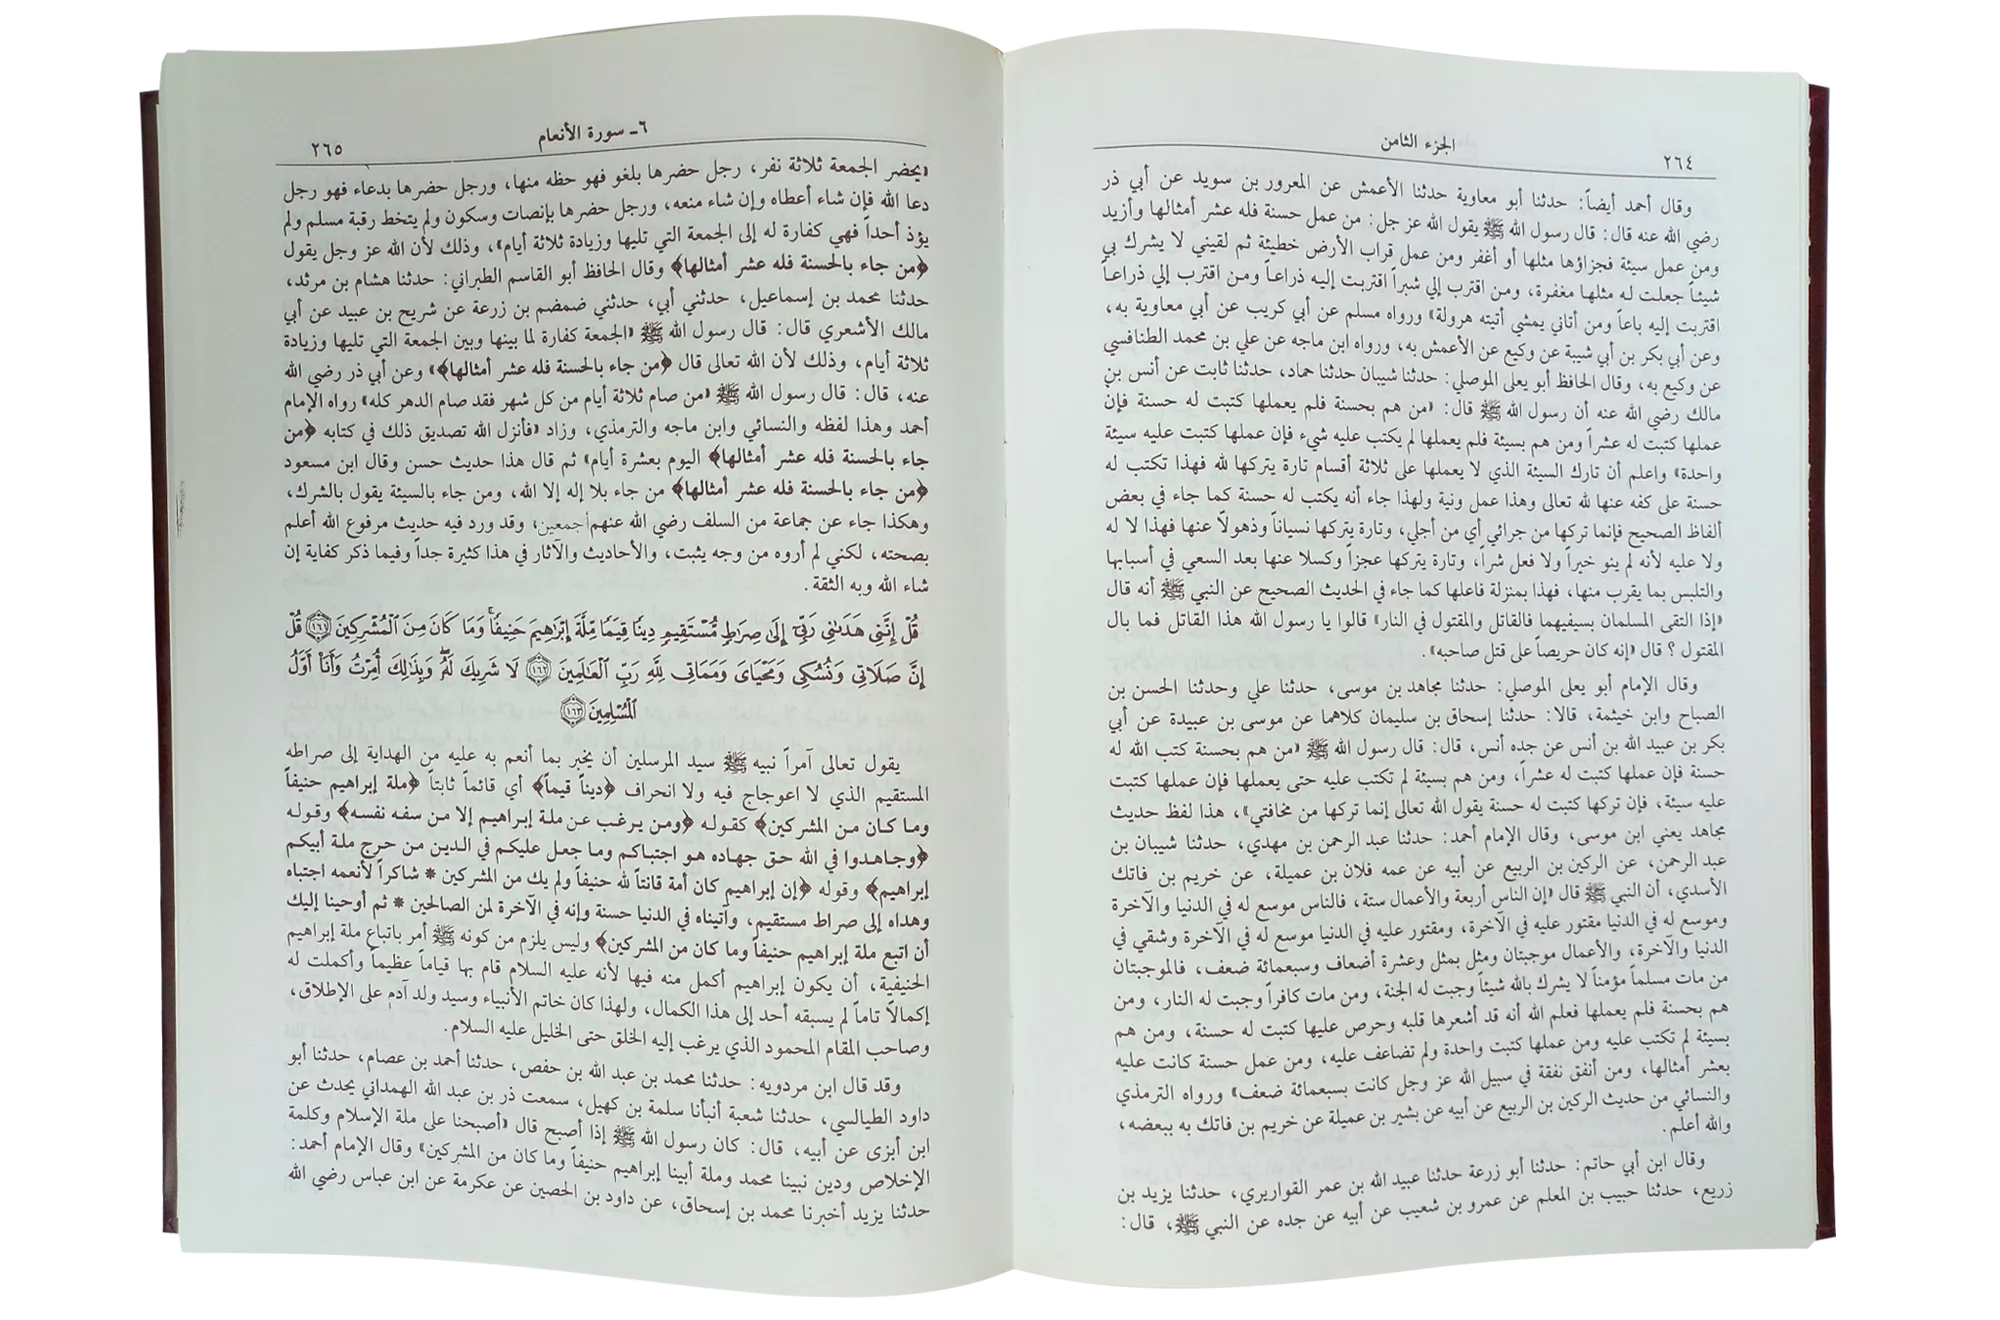 ٢٦٤
الجزء الثامن
وقال أحمد أيضاً: حدثنا أبو معاوية حدثنا الأعمش عن المعرور بن سويد عن أبي ذر
رضي الله عنه قال: قال رسول الله ﷺ يقول الله عز جل: من عمل حسنة فله عشر أمثالها وأزيد
ومن عمل سيئة فجزاؤها مثلها أو أغفر ومن عمل قراب الأرض خطيئة ثم لقيني لا يشرك بي
شيئاً جعلت له مثلها مغفرة، ومن اقترب إلي شبراً اقتربت إليه ذراعاً ومن اقترب إلي ذراعاً
اقتربت إليه باعاً ومن أتاني يمشي أتيته هرولة» ورواه مسلم عن أبي كريب عن أبي معاوية به،
وعن أبي بكر بن أبي شيبة عن وكيع عن الأعمش به، ورواه ابن ماجه عن علي بن محمد الطنافسي
عن وكيع به، وقال الحافظ أبو يعلى الموصلي: حدثنا شيبان حدثنا حماد، حدثنا ثابت عن أنس بن
مالك رضي الله عنه أن رسول الله ﷺ قال: «من هم بحسنة فلم يعملها كتبت له حسنة فإن
عملها كتبت له عشراً ومن هم بسيئة فلم يعملها لم يكتب عليه شيء فإن عملها كتبت عليه سيئة
واحدة» واعلم أن تارك السيئة الذي لا يعملها على ثلاثة أقسام تارة يتركها لله فهذا تكتب له
حسنة على كفه عنها لله تعالى وهذا عمل ونية ولهذا جاء أنه يكتب له حسنة كما جاء في بعض
ألفاظ الصحيح فإنما تركها من جرائي أي من أجلي، وتارة يتركها نسياناً وذهولاً عنها فهذا لا له
ولا عليه لأنه لم ينو خيراً ولا فعل شراً، وتارة يتركها عجزاً وكسلا عنها بعد السعي في أسبابها
والتلبس بما يقرب منها، فهذا بمنزلة فاعلها كما جاء في الحديث الصحيح عن النبي ﷺ أنه قال
«إذا التقى المسلمان بسيفيهما فالقاتل والمقتول في النار» قالوا يا رسول الله هذا القاتل فما بال
المقتول ؟ قال «إنه كان حريصاً على قتل صاحبه».
وقال الإمام أبو يعلى الموصلي: حدثنا مجاهد بن موسى، حدثنا علي وحدثنا الحسن بن
الصباح وابن خيثمة، قالا: حدثنا إسحاق بن سليمان كلاهما عن موسى بن عبيدة عن أبي
بكر بن عبيد الله بن أنس عن جده أنس، قال: قال رسول الله ﷺ «من هم بحسنة كتب الله له
حسنة فإن عملها كتبت له عشراً، ومن هم بسيئة لم تكتب عليه حتى يعملها فإن عملها كتبت
عليه سيئة، فإن تركها كتبت له حسنة يقول الله تعالى إنما تركها من مخافتي»، هذا لفظ حديث
مجاهد يعني ابن موسى، وقال الإمام أحمد: حدثنا عبد الرحمن بن مهدي، حدثنا شيبان بن
عبد الرحمن، عن الركين بن الربيع عن أبيه عن عمه فلان بن عميلة، عن خريم بن فاتك
الأسدي، أن النبي ﷺ قال «إن الناس أربعة والأعمال ستة، فالناس موسع له في الدنيا والآخرة
وموسع له في الدنيا مقتور عليه في الآخرة، ومقتور عليه في الدنيا موسع له في الآخرة وشقي في
الدنيا والآخرة، والأعمال موجبتان ومثل بمثل وعشرة أضعاف وسبعمائة ضعف، فالموجبتان
من مات مسلماً مؤمناً لا يشرك بالله شيئاً وجبت له الجنة، ومن مات كافراً وجبت له النار، ومن
هم بحسنة فلم يعملها فعلم الله أنه قد أشعرها قلبه وحرص عليها كتبت له حسنة، ومن هم
بسيئة لم تكتب عليه ومن عملها كتبت واحدة ولم تضاعف عليه، ومن عمل حسنة كانت عليه
بعشر أمثالها، ومن أنفق نفقة في سبيل الله عز وجل كانت بسبعمائة ضعف» ورواه الترمذي
والنسائي من حديث الركين بن الربيع عن أبيه عن بشير بن عميلة عن خريم بن فاتك به ببعضه،
والله أعلم.
وقال ابن أبي حاتم: حدثنا أبو زرعة حدثنا عبيد الله بن عمر القواريري، حدثنا يزيد بن
زريع، حدثنا حبيب بن المعلم عن عمرو بن شعيب عن أبيه عن جده عن النبي ﷺ، قال:
٦ـ سورة الأنعام
٢٦٥
«يحضر الجمعة ثلاثة نفر، رجل حضرها بلغو فهو حظه منها، ورجل حضرها بدعاء فهو رجل
دعا الله فإن شاء أعطاه وإن شاء منعه، ورجل حضرها بإنصات وسكون ولم يتخط رقبة مسلم ولم
يؤذ أحداً فهي كفارة له إلى الجمعة التي تليها وزيادة ثلاثة أيام»، وذلك لأن الله عز وجل يقول
﴿من جاء بالحسنة فله عشر أمثالها﴾ وقال الحافظ أبو القاسم الطبراني: حدثنا هشام بن مرثد،
حدثنا محمد بن إسماعيل، حدثني أبي، حدثني ضمضم بن زرعة عن شريح بن عبيد عن أبي
مالك الأشعري قال: قال رسول الله ﷺ «الجمعة كفارة لما بينها وبين الجمعة التي تليها وزيادة
ثلاثة أيام، وذلك لأن الله تعالى قال ﴿من جاء بالحسنة فله عشر أمثالها﴾» وعن أبي ذر رضي الله
عنه، قال: قال رسول الله ﷺ «من صام ثلاثة أيام من كل شهر فقد صام الدهر كله» رواه الإمام
أحمد وهذا لفظه والنسائي وابن ماجه والترمذي، وزاد «فأنزل الله تصديق ذلك في كتابه ﴿من
جاء بالحسنة فله عشر أمثالها﴾ اليوم بعشرة أيام» ثم قال هذا حديث حسن وقال ابن مسعود
﴿من جاء بالحسنة فله عشر أمثالها﴾ من جاء بلا إله إلا الله، ومن جاء بالسيئة يقول بالشرك،
وهكذا جاء عن جماعة من السلف رضي الله عنهم أجمعين، وقد ورد فيه حديث مرفوع الله أعلم
بصحته، لكني لم أروه من وجه يثبت، والأحاديث والآثار في هذا كثيرة جداً وفيما ذكر كفاية إن
شاء الله وبه الثقة .
قُلْ إِنَّنِى هَدَىٰنِى رَبِّىٓ إِلَىٰ صِرَٰطٍ مُّسْتَقِيمٍ دِينًا قِيَمًا مِّلَّةَ إِبْرَٰهِيمَ حَنِيفًا ۚ وَمَا كَانَ مِنَ ٱلْمُشْرِكِينَ ﴿١٦١﴾ قُلْ
إِنَّ صَلَاتِى وَنُسُكِى وَمَحْيَاىَ وَمَمَاتِى لِلَّهِ رَبِّ ٱلْعَـٰلَمِينَ ﴿١٦٢﴾ لَا شَرِيكَ لَهُۥ ۖ وَبِذَٰلِكَ أُمِرْتُ وَأَنَا۠ أَوَّلُ
ٱلْمُسْلِمِينَ ﴿١٦٣﴾
يقول تعالى آمراً نبيه ﷺ سيد المرسلين أن يخبر بما أنعم به عليه من الهداية إلى صراطه
المستقيم الذي لا اعوجاج فيه ولا انحراف ﴿ديناً قيماً﴾ أي قائماً ثابتاً ﴿ملة إبراهيم حنيفاً
وما كان من المشركين﴾ كقوله ﴿ومن يرغب عن ملة إبراهيم إلا من سفه نفسه﴾ وقوله
﴿وجاهدوا في الله حق جهاده هو اجتباكم وما جعل عليكم في الدين من حرج ملة أبيكم
إبراهيم﴾ وقوله ﴿إن إبراهيم كان أمة قانتاً لله حنيفاً ولم يك من المشركين * شاكراً لأنعمه اجتباه
وهداه إلى صراط مستقيم، وآتيناه في الدنيا حسنة وإنه في الآخرة لمن الصالحين * ثم أوحينا إليك
أن اتبع ملة إبراهيم حنيفاً وما كان من المشركين﴾ وليس يلزم من كونه ﷺ أمر باتباع ملة إبراهيم
الحنيفية، أن يكون إبراهيم أكمل منه فيها لأنه عليه السلام قام بها قياماً عظيماً وأكملت له
إكمالاً تاماً لم يسبقه أحد إلى هذا الكمال، ولهذا كان خاتم الأنبياء وسيد ولد آدم على الإطلاق،
وصاحب المقام المحمود الذي يرغب إليه الخلق حتى الخليل عليه السلام.
وقد قال ابن مردويه: حدثنا محمد بن عبد الله بن حفص، حدثنا أحمد بن عصام، حدثنا أبو
داود الطيالسي، حدثنا شعبة أنبأنا سلمة بن كهيل، سمعت ذر بن عبد الله الهمداني يحدث عن
ابن أبزى عن أبيه، قال: كان رسول الله ﷺ إذا أصبح قال «أصبحنا على ملة الإسلام وكلمة
الإخلاص ودين نبينا محمد وملة أبينا إبراهيم حنيفاً وما كان من المشركين» وقال الإمام أحمد:
حدثنا يزيد أخبرنا محمد بن إسحاق، عن داود بن الحصين عن عكرمة عن ابن عباس رضي الله